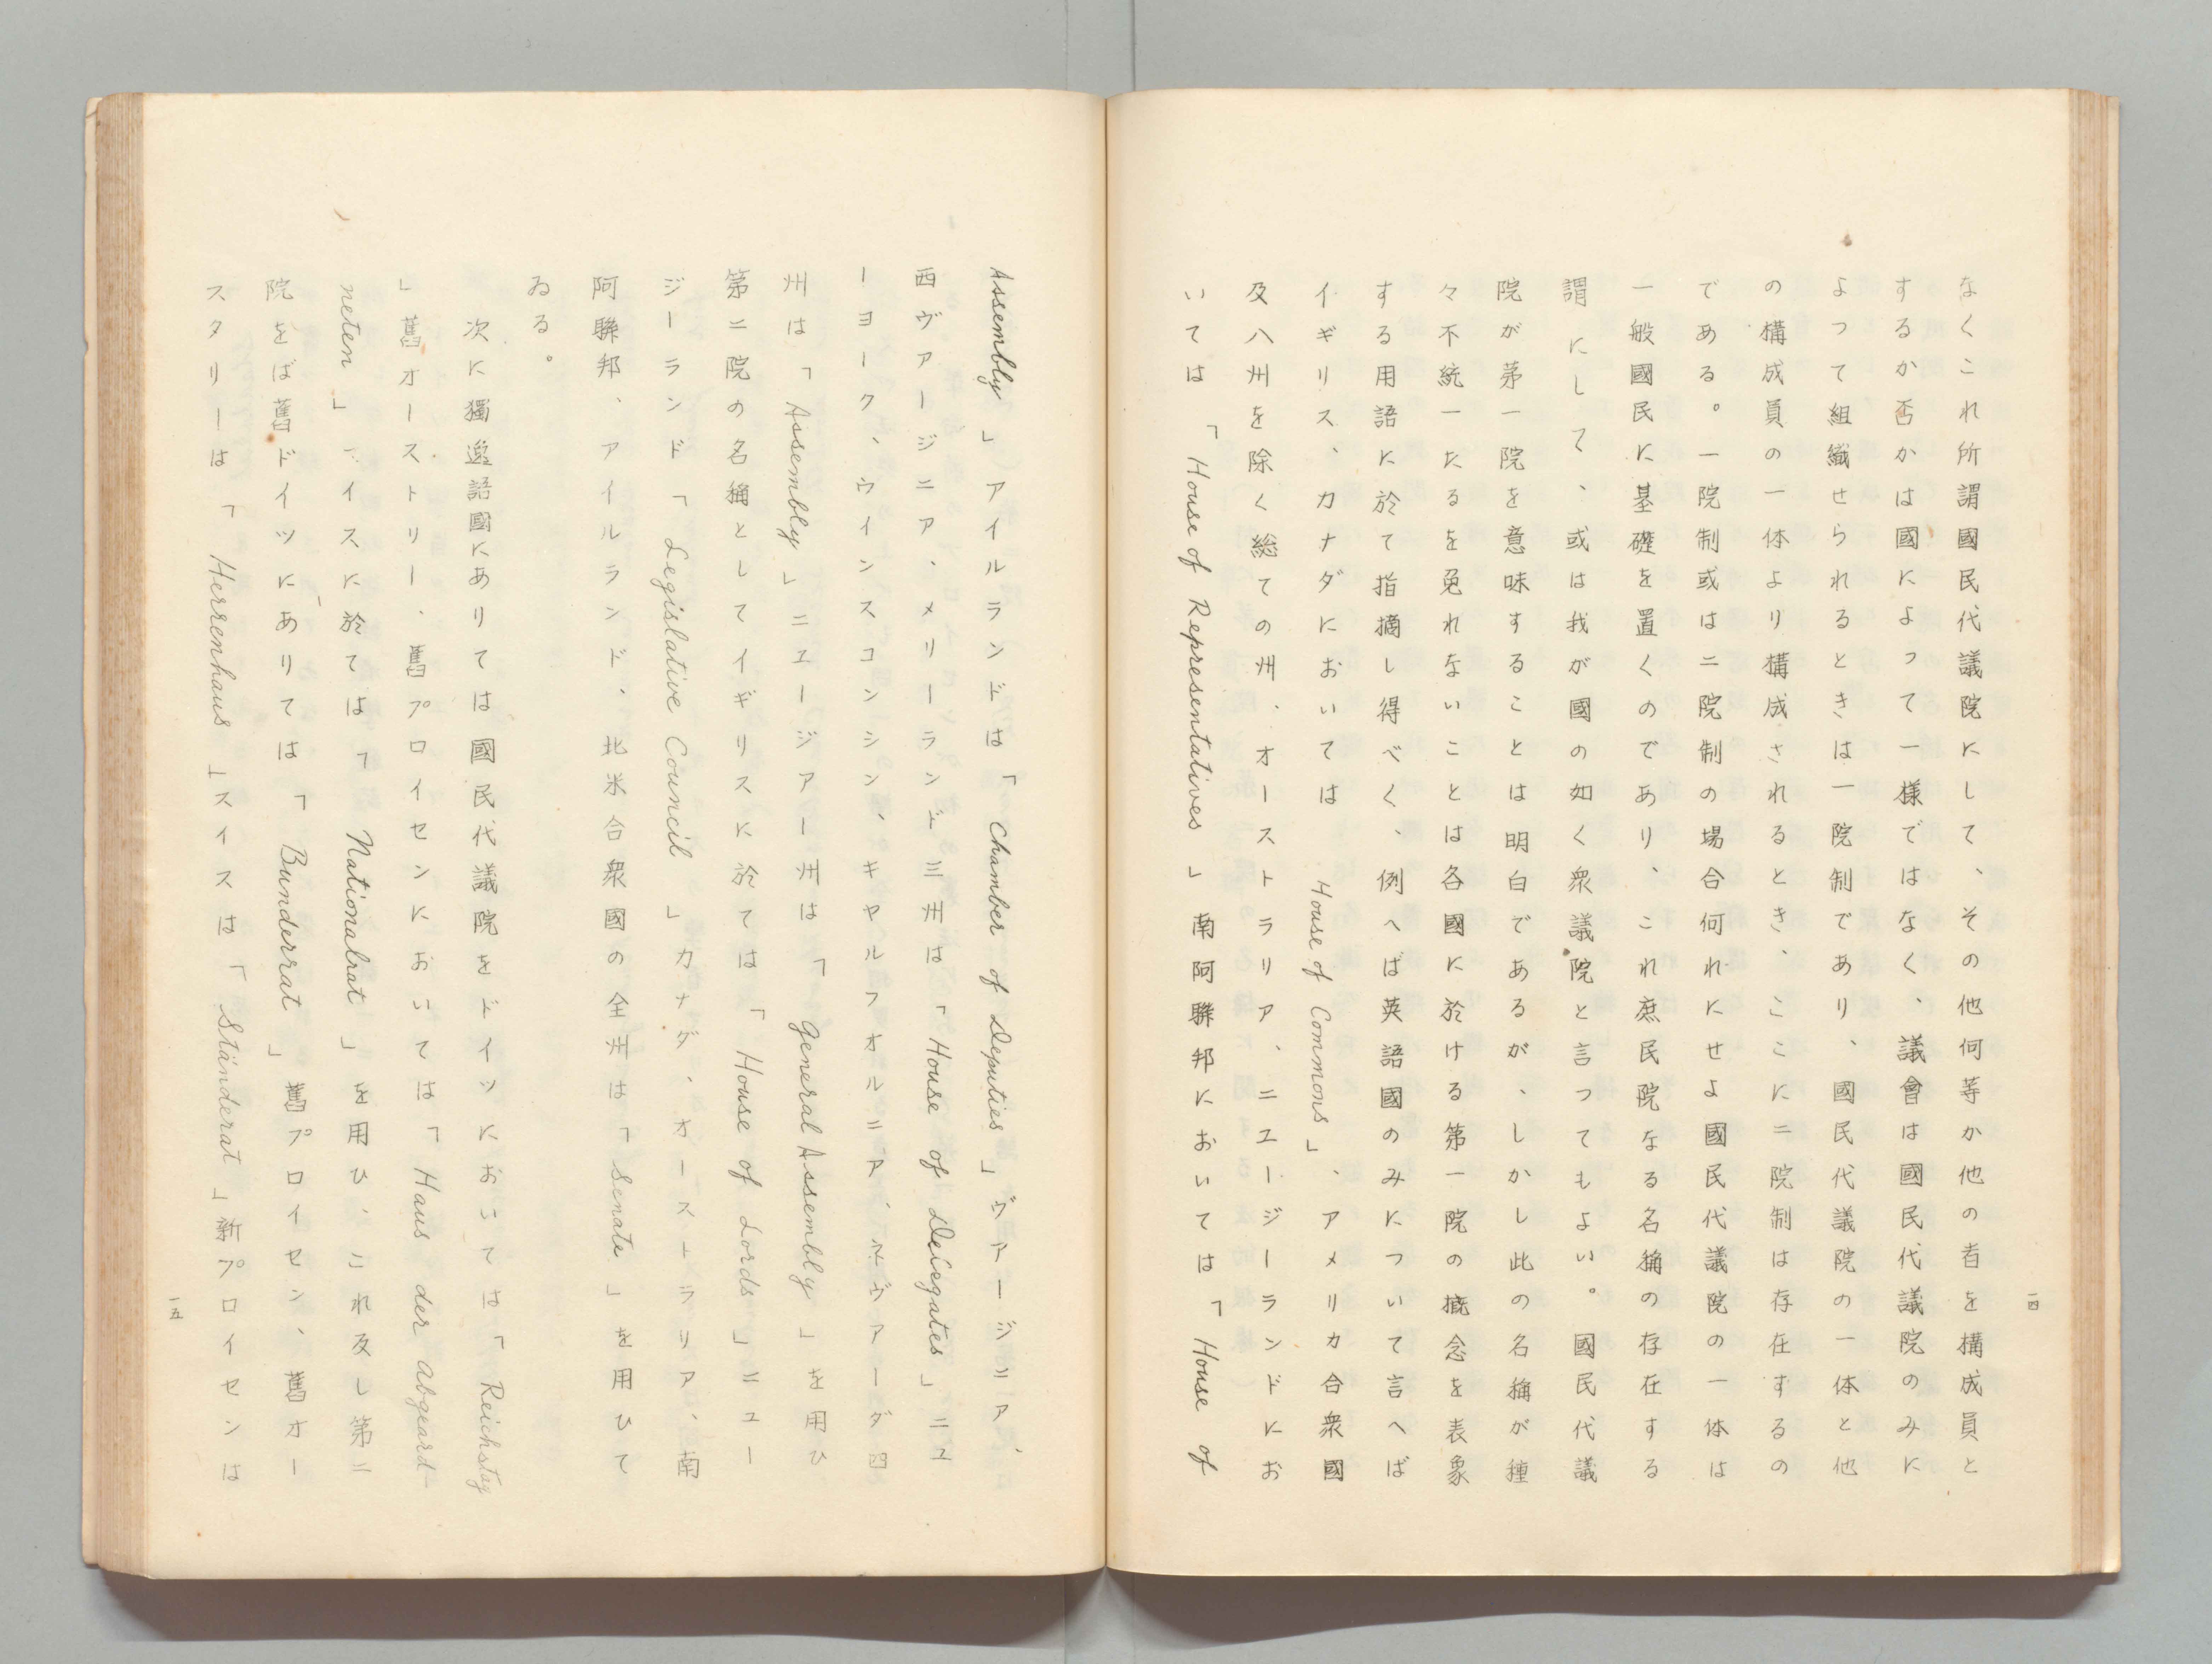 一四
なくこれ所謂國民代議院にして、その他何等か他の者を構成員と
するか否かは國によって一様ではなく、議會は國民代議院のみに
よつて組織せられるときは一院制であり、國民代議院の一体と他
の構成員の一体より構成されるとき、こゝに二院制は存在するの
である。一院制或は二院制の場合何れにせよ國民代議院の一体は
一般國民に基礎を置くのであり、これ庶民院なる名稱の存在する
謂にして、或は我が國の如く衆議院と言つてもよい。國民代議
院が第一院を意味することは明白であるが、しかし此の名稱が種
々不統一たるを免れないことは各國に於ける第一院の概念を表象
する用語に於て指摘し得べく、例へば英語國のみについて言へば
イギリス、カナダにおいては House of Commons」、アメリカ合衆國
及八州を除く総ての州、オーストラリア、ニユージーランドにお
いては「House of Representatives」南阿聯邦においては「House of
Assembly」アイルランドは「Chamber of Deputies」ヴアージニア、
西ヴアージニア、メリーランド三州は「House of Delegates」ニユ
ーヨーク、ウインスコンシン、キヤルフオルニア、ネヴアーダ四
州は「Assembly」ニユージアー州は「General Assembly」を用ひ
第二院の名稱としてイギリスに於ては「House of Lords」ニユー
ジーランド「Legislative Council」カナダ、オーストラリア、南
阿聯邦、アイルランド、北米合衆國の全州は「Senate」を用ひて
ゐる。
次に獨逸語國にありては國民代議院をドイツにおいては「Reichstag
」舊オーストリー、舊プロイセンにおいては「Haus der Abgeord-
neten」スイスに於ては「Nationalrat」を用ひ、これ反し第二
院をば舊ドイツにありては「Bunderat」舊プロイセン、舊オー
スタリーは「Herrenhaus」スイスは「Ständerat」新プロイセンは
一五